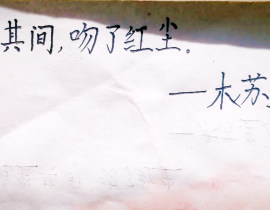 其间,吻了红尘。
——木苏